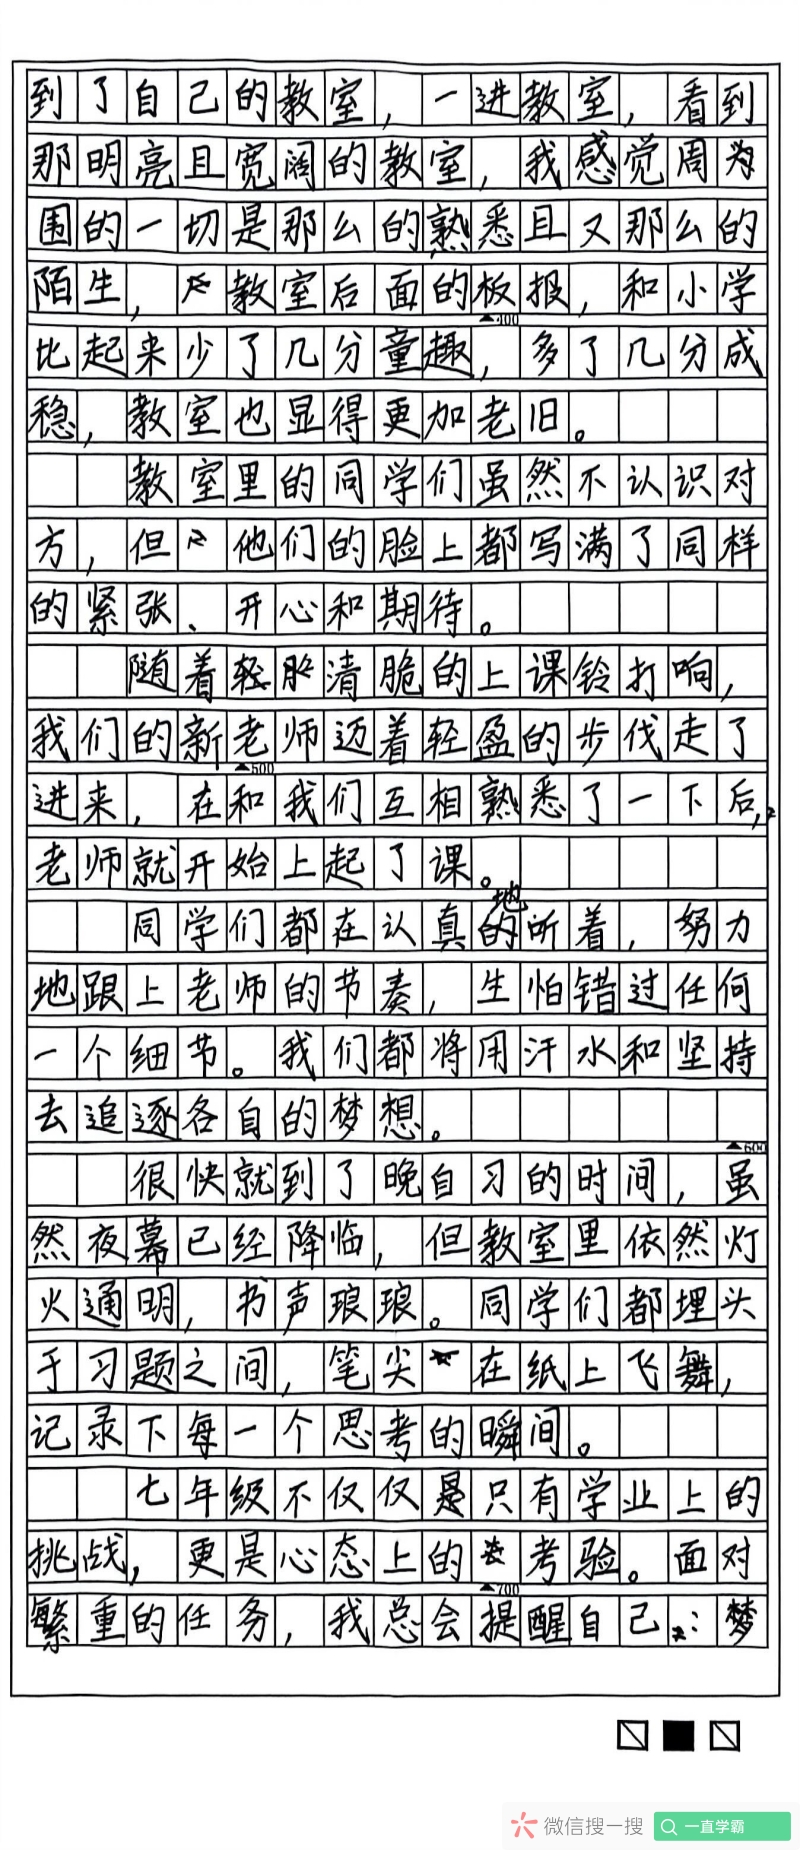 到了自己的教室，一进教室，看到
那明亮且宽阔的教室，我感觉周
围的一切是那么的熟悉且又那么的
陌生，教室后面的板报，和小学
▲400
比起来少了几分童趣，多了几分成
稳，教室也显得更加老旧。
教室里的同学们虽然不认识对
方，但他们的脸上都写满了同样
的紧张、开心和期待。
随着轻脆清脆的上课铃打响，
我们的新老师迈着轻盈的步伐走了
▲500
进来，在和我们互相熟悉了一下后，
老师就开始上起了课。
同学们都在认真地听着，努力
地跟上老师的节奏，生怕错过任何
一个细节。我们都将用汗水和坚持
去追逐各自的梦想。
▲600
很快就到了晚自习的时间，虽
然夜幕已经降临，但教室里依然灯
火通明，书声琅琅。同学们都埋头
于习题之间，笔尖在纸上飞舞，
记录下每一个思考的瞬间。
七年级不仅仅是只有学业上的
挑战，更是心态上的考验。面对
▲700
繁重的任务，我总会提醒自己：梦
微信搜一搜
一直学霸